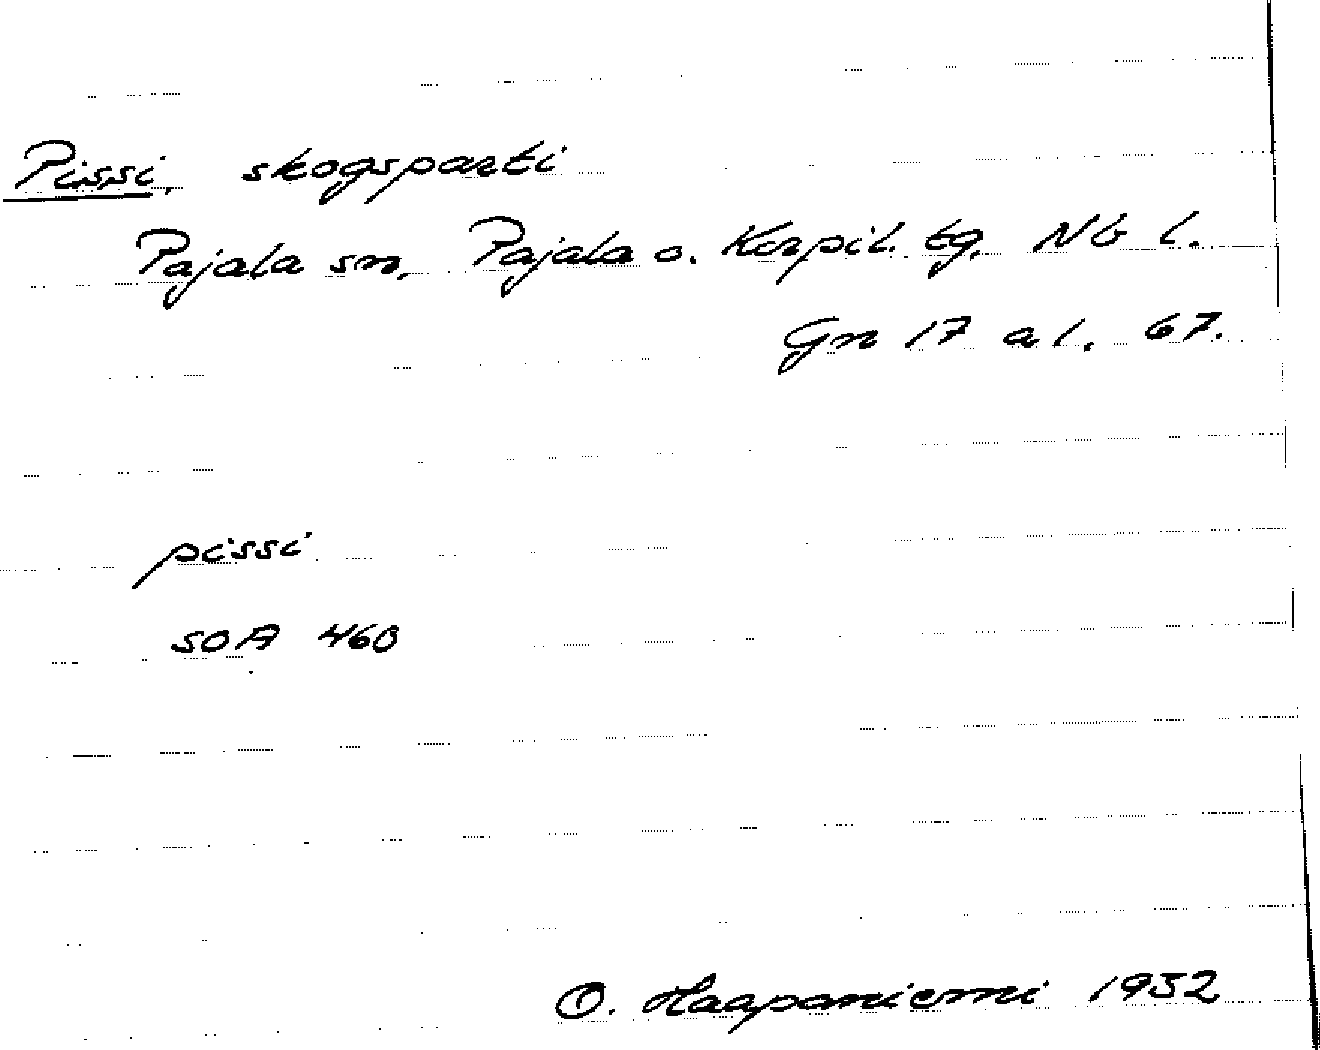 Pissi, skogsparti
Pajala sn, Pajala o. Korpil. tg. Nb l.
Gn 17 a l. 67.
pissi
SOA 460
O. Haapaniemi 1932